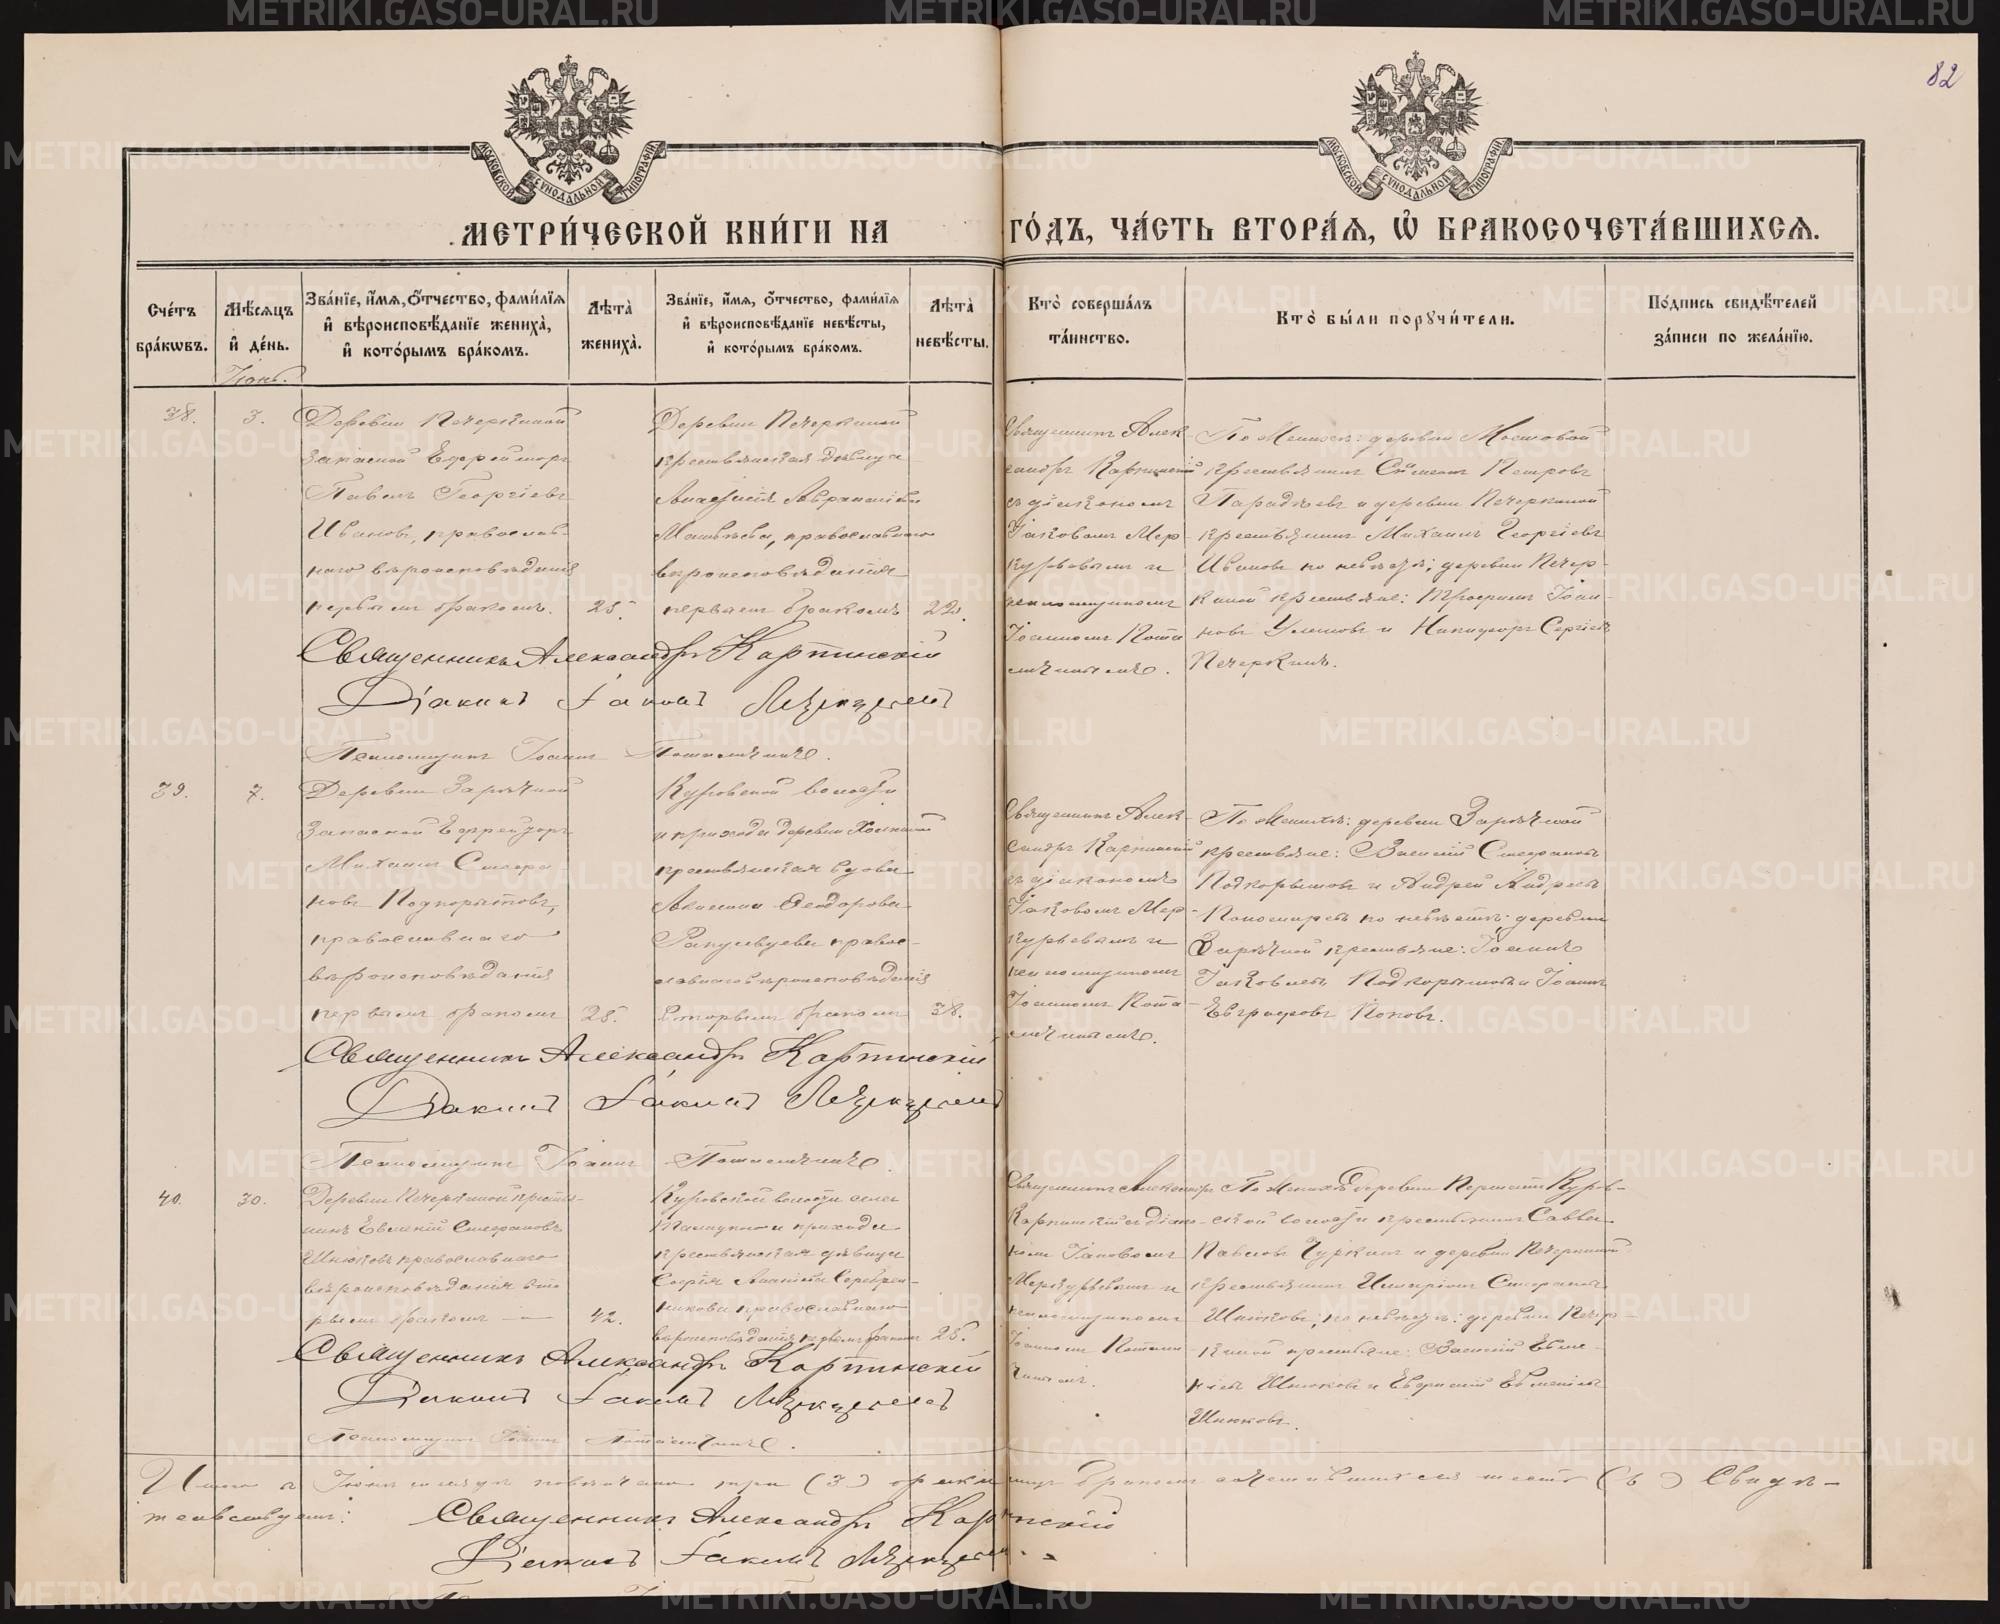 82
МЕТРИ́ЧЕСКОЙ КНИ́ГИ НА ГО́ДЪ, ЧА́СТЬ ВТОРА́Я, Ѡ БРАКОСОЧЕТА́ВШИХСЯ.
Сче́тъ бра́кѡвъ.
Мѣ́сяцъ и де́нь.
Зва́нїе, и́мя, ѻ́тчество, фами́лїя и вѣроисповѣ́данїе жениха̀, и кото́рымъ бра́комъ.
Лѣта̀ жениха̀.
Зва́нїе, и́мя, ѻ́тчество, фами́лїя и вѣроисповѣ́данїе невѣ́сты, и кото́рымъ бра́комъ.
Лѣта̀ невѣ́сты.
Кто̀ соверша́лъ та́инство.
Кто̀ бы́ли порꙋчи́тели.
По́дпись свидѣ́телей за́писи по жела́нїю.
Іюнь.
38.
3.
Деревни Печеркиной
запасной Ефрейторъ
Павелъ Георгіевъ
Ивановъ, православ-
наго вѣроисповѣданія
первымъ бракомъ.
25.
Деревни Печеркиной
крестьянская дѣвица
Матвѣева, православнаго
вѣроисповѣданія
первымъ бракомъ
22.
Священникъ Алек-
сандръ Карпинскій
съ діакономъ
Іаковомъ Мер-
курьевымъ и
псаломщикомъ
Іоанномъ
По женихѣ: деревни Мостовой
крестьянинъ Симеонъ Петровъ
и деревни Печеркиной
крестьянинъ Михаилъ Георгіевъ
Ивановъ по невѣстѣ; деревни Печер-
киной крестьяне: Трофимъ Іоан-
новъ и Никифоръ Сергіевъ
Печеркинъ.
Священникъ Александръ Карпинскій
Діаконъ Іаковъ Меркурьевъ
Псаломщикъ Іоаннъ
39.
7.
Деревни Зарѣчной
Запасной Ефрейторъ
Михаилъ Стефа
новъ Подкорытовъ,
православнаго
вѣроисповѣданія
первымъ бракомъ
25.
Куровской волости
и прихода деревни
крестьянская вдова
Ѳеодорова
правос-
лавнаго вѣроисповѣданія
Вторымъ бракомъ
38.
Священникъ Алек-
сандръ Карпинскій
съ діакономъ
Іаковомъ Мер-
курьевымъ и
псаломщикомъ
Іоанномъ
По женихѣ: деревни Зарѣчной
крестьяне: Василій Стефановъ
Подкорытовъ и Андрей Андреевъ
Пономаревъ по невѣстѣ: деревни
Зарѣчной крестьяне: Іоаннъ
Іаковлевъ Подкорытовъ и Іоаннъ
Евграфовъ Поповъ.
Священникъ Александръ Карпинскій
Діаконъ Іаковъ Меркурьевъ
Псаломщикъ Іоаннъ
40.
30.
Деревни Печеркиной крестья-
нинъ Евменій Стефановъ
Шнюковъ православнаго
вѣроисповѣданія вто
рымъ бракомъ —
42.
Куровской волости села
и прихода
крестьянская дѣвица
Софія Серебрен-
никова православнаго
вѣроисповѣданія первымъ бракомъ
25.
Священникъ Александръ
Карпинскій съ діако-
номъ Іаковомъ
Меркурьевымъ и
псаломщикомъ
Іоанномъ
По женихѣ: деревни Куров-
ской волости крестьянинъ Савва
Павловъ Чуркинъ и деревни Печеркиной
крестьянинъ Стефановъ
Шнюковъ; по невѣстѣ: деревни Печер-
киной крестьяне: Василій Евме-
ніевъ Шнюковъ и Евменіевъ
Шнюковъ.
Священникъ Александръ Карпинскій
Діаконъ Іаковъ Меркурьевъ
Псаломщикъ Іоаннъ
Итого въ Іюнѣ мѣсяцѣ повѣнчано три (3) брака бракомъ сочетавшихся шесть (6) Свидѣ-
тельствуемъ:
Священникъ Александръ Карпинскій
Діаконъ Іаковъ Меркурьевъ
METRIKI.GASO-URAL.RU